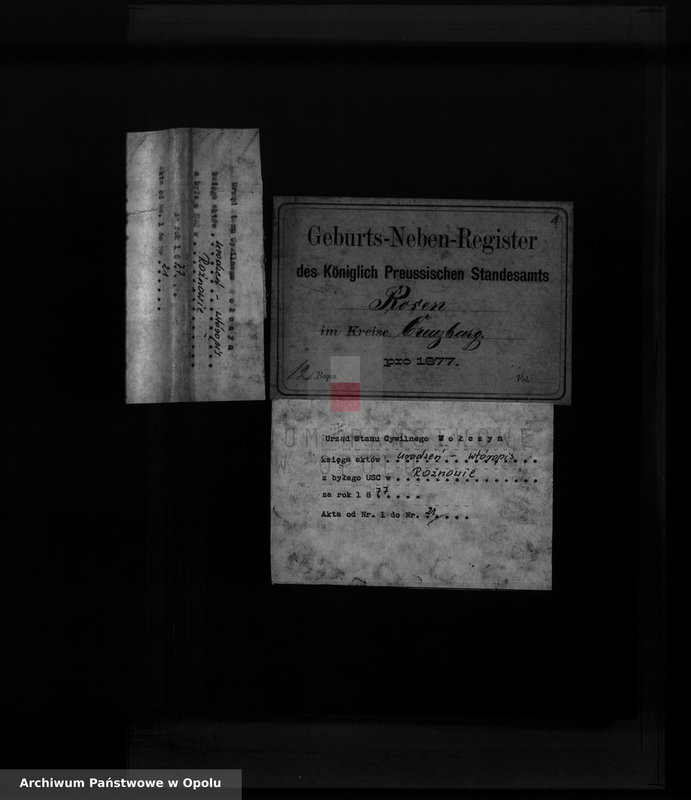 4
Geburts-Neben-Register
des Königlich Preussischen Standesamts
Rosen
im Kreise Creuzburg.
pro 1877.
12 Bogen Vol.
Urząd Stanu Cywilnego Wołczyn
księga aktów urodzeń - wtóropis
z byłego USC w Rożnowie
za rok 1877
Akta od Nr. 1 do Nr. 21
Urząd Stanu Cywilnego Wołczyn
księga aktów urodzeń - wtóropis
z byłego USC w Rożnowie
za rok 1877
Akta od Nr. 1 do Nr. 21
Archiwum Państwowe w Opolu